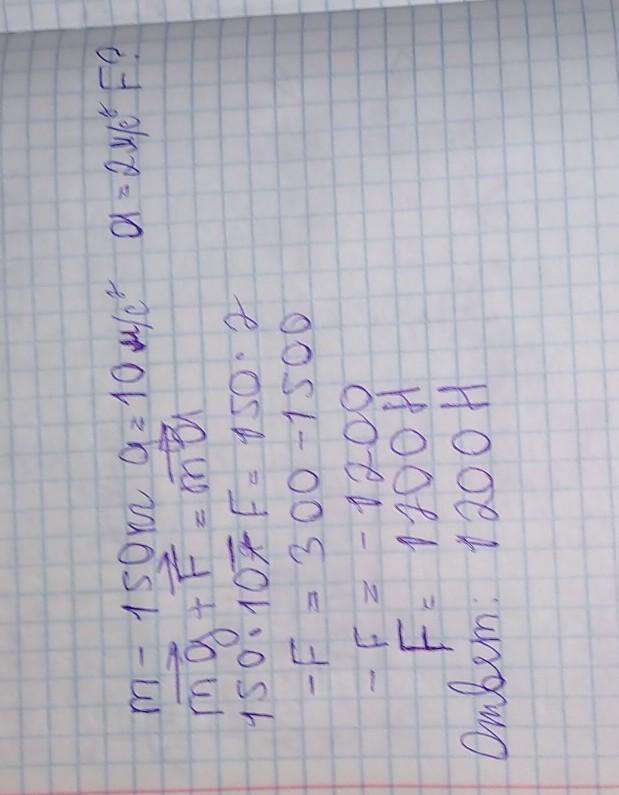 m - 150кг g=10 м/с² a=2м/с² F?
mg + F = ma
150·10 - F = 150·2
-F = 300 - 1500
-F = -1200
F = 1200 Н
Ответ: 1200 Н